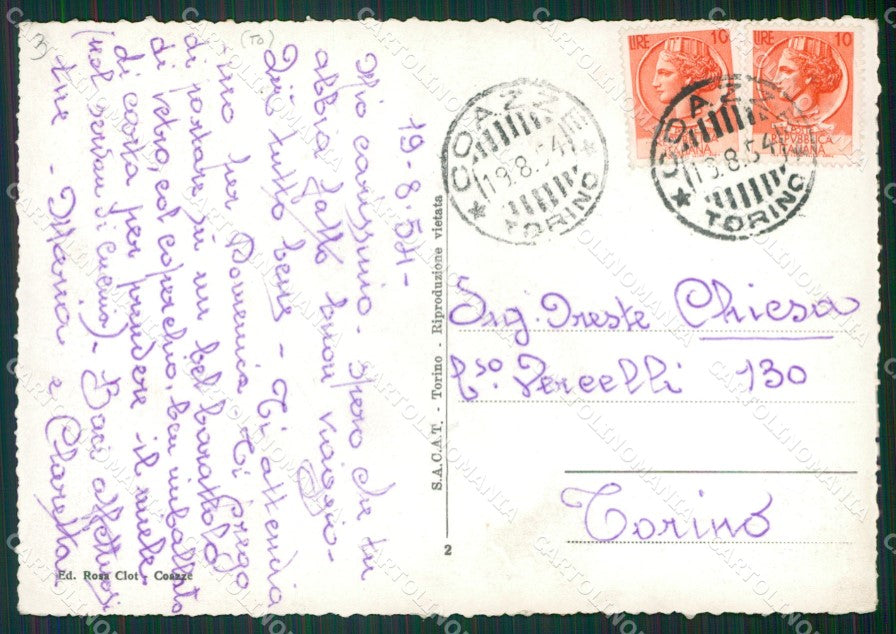 19-8-54-
Mio carissimo - spero che tu
abbia fatto buon viaggio -
Qui tutto bene - Ti attendia
mo per Domenica. Ti prego
di portare su un bel barattolo
di vetro, col coperchio, ben imballato
di carta per prendere il miele
(nel                 ) - Baci affettuosi
tue - Mamma e Claretta
(TO)
LIRE 10
POSTE
REPUBBLICA
ITALIANA
LIRE 10
POSTE
REPUBBLICA
ITALIANA
COAZZE
19.8.54
TORINO
COAZZE
19.8.54
TORINO
Ing. Oreste Chiesa
C.so Vercelli 130
Torino
S.A.C.A.T. - Torino - Riproduzione vietata
2
Ed. Rosa Clot - Coazze
CARTOLINOMANIA